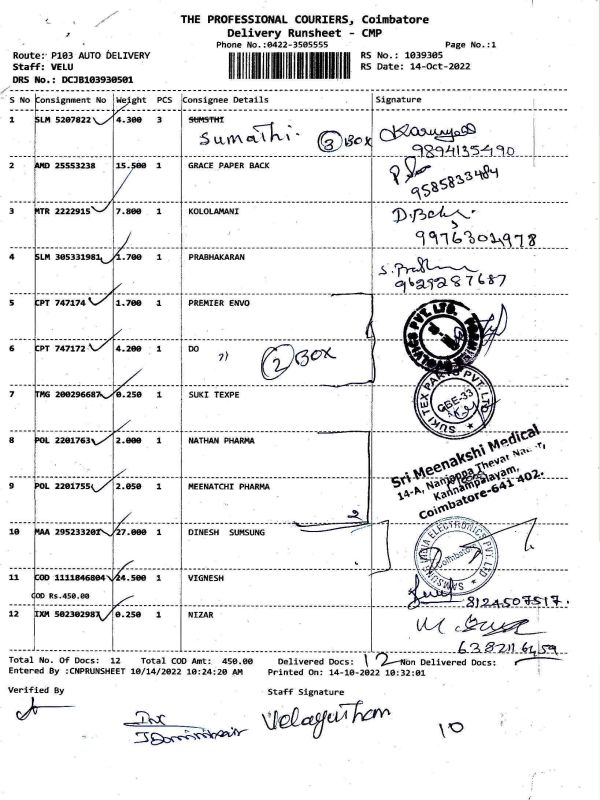 THE PROFESSIONAL COURIERS, Coimbatore
Delivery Runsheet - CMP
Phone No.:0422-3505555 Page No.:1
Route: P103 AUTO DELIVERY RS No.: 1039305
Staff: VELU RS Date: 14-Oct-2022
DRS No.: DCJB103930501
S No Consignment No Weight PCS Consignee Details Signature
1 SLM 5207822 4.300 3 SUMSTHI
Sumathi. 3 BOX
9894135490
2 AMD 25553238 15.500 1 GRACE PAPER BACK
9585833484
3 MTR 2222915 7.800 1 KOLOLAMANI
9976301978
4 SLM 305331981 1.700 1 PRABHAKARAN
9629287687
5 CPT 747174 1.700 1 PREMIER ENVO
6 CPT 747172 4.200 1 DO
2 BOX
7 TMG 200296687 0.250 1 SUKI TEXPE
SUKI TEX PARTS PVT. LTD
CBE-33
8 POL 2201763 2.000 1 NATHAN PHARMA
Sri Meenakshi Medical
14-A, Nanjappa Thevar
Kannampalayam,
Coimbatore-641 402.
9 POL 2201755 2.050 1 MEENATCHI PHARMA
2
10 MAA 295233201 27.000 1 DINESH SUMSUNG
ELECTRONICS PVT. LTD
Coimbatore
11 COD 1111846804 24.500 1 VIGNESH
COD Rs.450.00
8124507517.
12 IXM 502302987 0.250 1 NIZAR
6382116459
Total No. Of Docs: 12 Total COD Amt: 450.00 Delivered Docs: 12 Non Delivered Docs:
Entered By :CNPRUNSHEET 10/14/2022 10:24:20 AM Printed On: 14-10-2022 10:32:01
Verified By Staff Signature
Velayutham
10